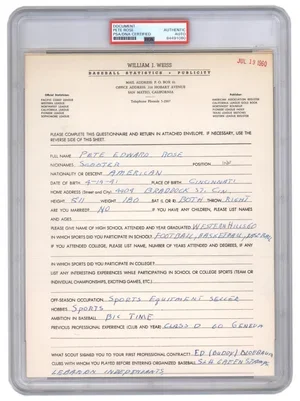 DOCUMENT
PETE ROSE
PSA/DNA CERTIFIED
AUTHENTIC
AUTO
JUL 19 1960
WILLIAM J. WEISS
BASEBALL STATISTICS • PUBLICITY
OFFICE ADDRESS,
SAN MATEO, CALIFORNIA
PLEASE COMPLETE THIS QUESTIONNAIRE AND RETURN IN ATTACHED ENVELOPE. IF NECESSARY, USE THE
REVERSE SIDE OF THIS SHEET.
FULL NAME PETE EDWARD ROSE
NICKNAME SCOOTER POSITION
NATIONALITY OR DESCENT AMERICAN
DATE OF BIRTH 4-14-41 PLACE OF BIRTH CINCINNATI
HOME ADDRESS (Street and City) 4404 BRADDOCK ST. CIN.
HEIGHT 5-11 WEIGHT 180 BAT L OR R BOTH THROW RIGHT
ARE YOU MARRIED? NO IF YOU HAVE ANY CHILDREN, PLEASE LIST NAMES
AND AGES.
PLEASE GIVE NAME OF HIGH SCHOOL ATTENDED AND YEAR GRADUATED WESTERN HILLS
IN WHICH SPORTS DID YOU PARTICIPATE IN SCHOOL? FOOTBALL, BASKETBALL,
IF YOU ATTENDED COLLEGE, PLEASE LIST NAME, NUMBER OF YEARS ATTENDED AND DEGREES, IF ANY
IN WHICH SPORTS DID YOU PARTICIPATE IN COLLEGE?
LIST ANY INTERESTING EXPERIENCES WHILE PARTICIPATING IN SCHOOL OR COLLEGE SPORTS (TEAM OR
INDIVIDUAL CHAMPIONSHIPS, EXCITING GAMES, ETC.)
OFF-SEASON OCCUPATION SPORTS EQUIPMENT SELLER
HOBBIES SPORTS
AMBITION IN BASEBALL BIG TIME
PREVIOUS PROFESSIONAL EXPERIENCE (CLUB AND YEAR) CLASS D 60 GENEVA
WHAT SCOUT SIGNED YOU TO YOUR FIRST PROFESSIONAL CONTRACT? ED (BUDDY)
CLUBS WITH WHICH YOU PLAYED BEFORE ENTERING ORGANIZED BASEBALL
LEBANON INDEPENDENTS